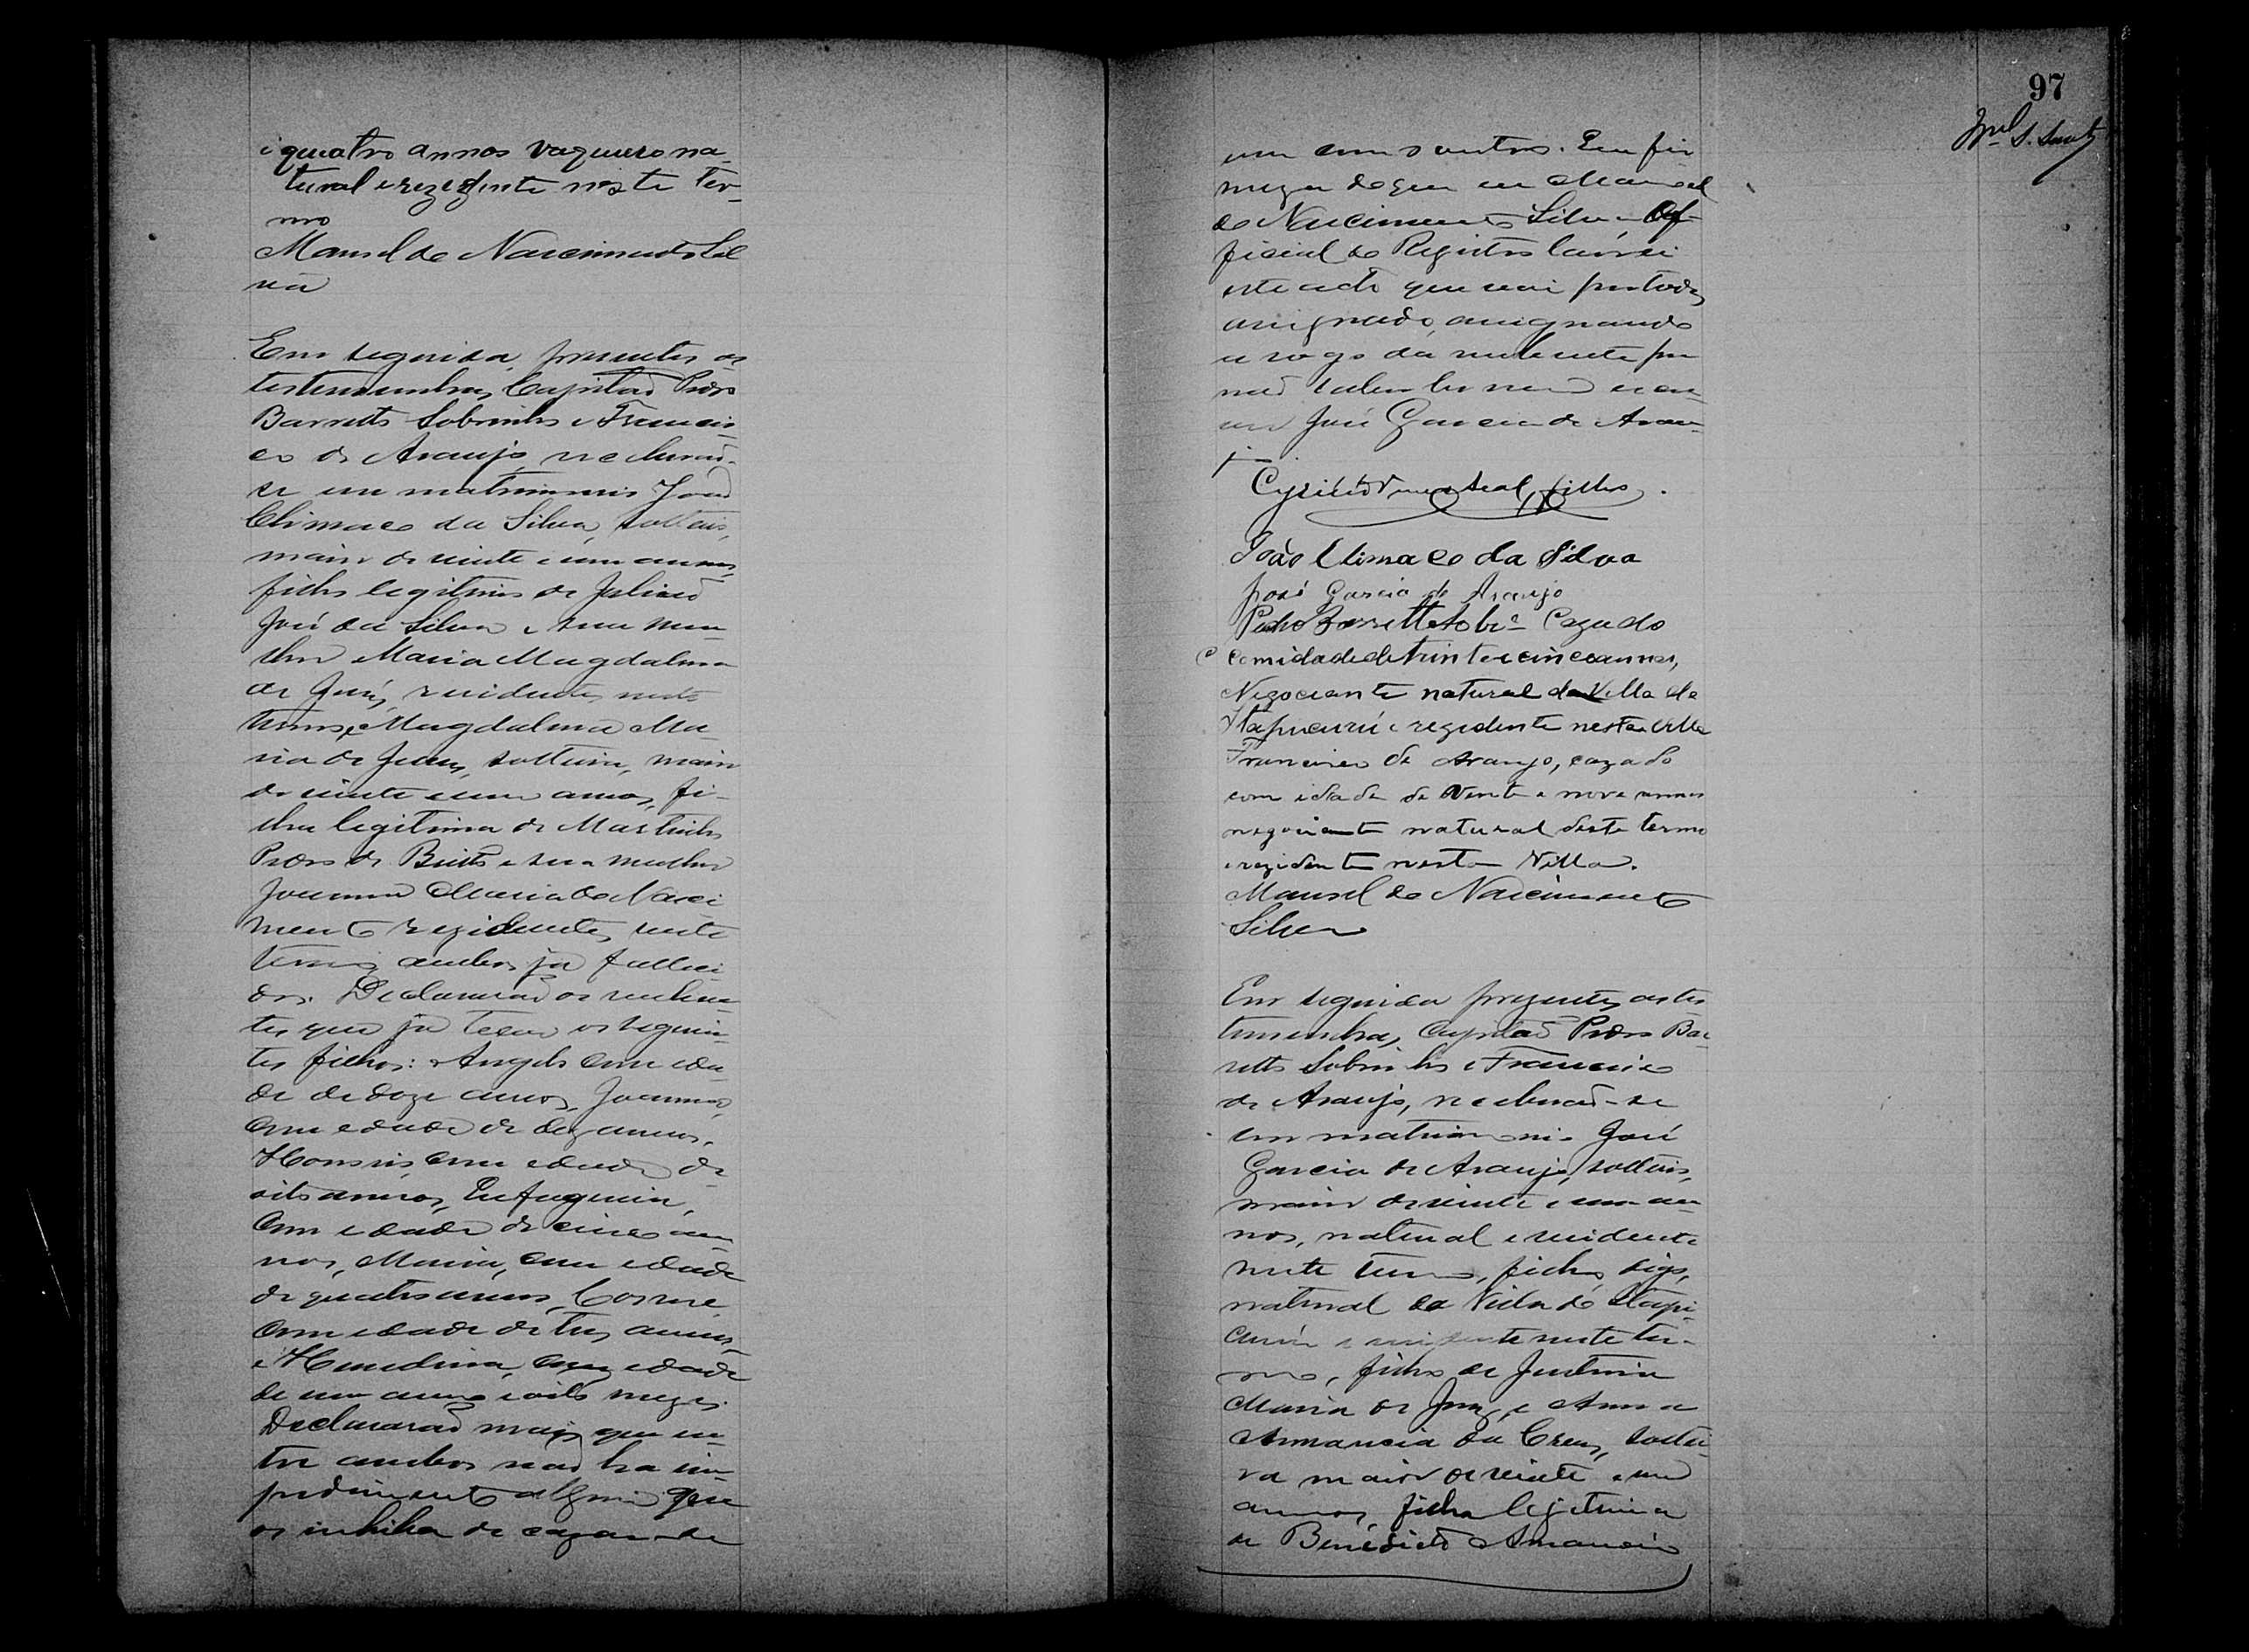 e quatro annos vaqueiro na-
tural e rezidente neste ter-
mo
Manoel do Nascimento Sil
va
Em seguida, presentes as
testemunhas, Capitão Pedro
Barretto Sobrinho e Francis-
co de Araujo, receberão-
se em matrimonio João
Climaco da Silva, solteiro,
maior de vinte e um annos,
filho legitimo de Julião
José da Silva e sua mu-
lher Maria Magdalena
de Jesus, residentes neste
termo, e Magdalena Ma-
ria de Jesus, solteira, maior
de vinte e um annos, fi-
lha legitima de Martinho
Pedro de Brito e sua mulher
Joanna Maria do Nasci
mento rezidentes neste
termo, ambos já falleci
dos. Declararão os nuben-
tes, que já teem os seguin-
tes filhos: Angelo com eda-
de de doze annos, Joanna,
com edade de dez annos,
Honorio, com edade de
oito annos, Eufugenia,
com edade de cinco an-
nos, Maria, com edade
de quatro annos, Cosme
com edade de tres annos,
e com edade
de um anno e oito mezes.
Declararão mais que en-
tre ambos não ha im-
pedimento algum que
os inhiba de cazar-se
97
um com o outro. Em fir
meza do que eu Manoel
do Nascimento Silva Of-
ficial do Registro lavrei
este acto que vai por todos
assignado, assignando
a rogo da nubente por
não saber ler nem escre
ver José Garcia de Arau-
jo.
filho.
João Climaco da Silva
José Garcia de Araujo
Pedro Barretto Sobrº Cazado
com idade de trinta e cinco annos,
Negociante natural da Villa de
Itapucurú e rezidente nesta Villa
Francisco de Araujo, cazado
com idade de vinte e nove annos
negociante natural deste termo
e rezidente nesta Villa.
Manoel do Nascimento
Silva
Em seguida prezentes as tes
temunhas, Capitão Pedro Bar
retto Sobrinho e Francisco
de Araujo, receberão-se
em matrimonio José
Garcia de Araujo, solteiro,
maior de vinte e um an-
nos, natural e residente
neste termo, filho, digo,
natural da Villa de Itapi-
curú e residente neste ter-
mo, filho de Justina
Maria de Jesus, e Anna
Amancia da Cruz, soltei-
ra maior de vinte e um
annos, filha legitima
de Benedicto Amancio